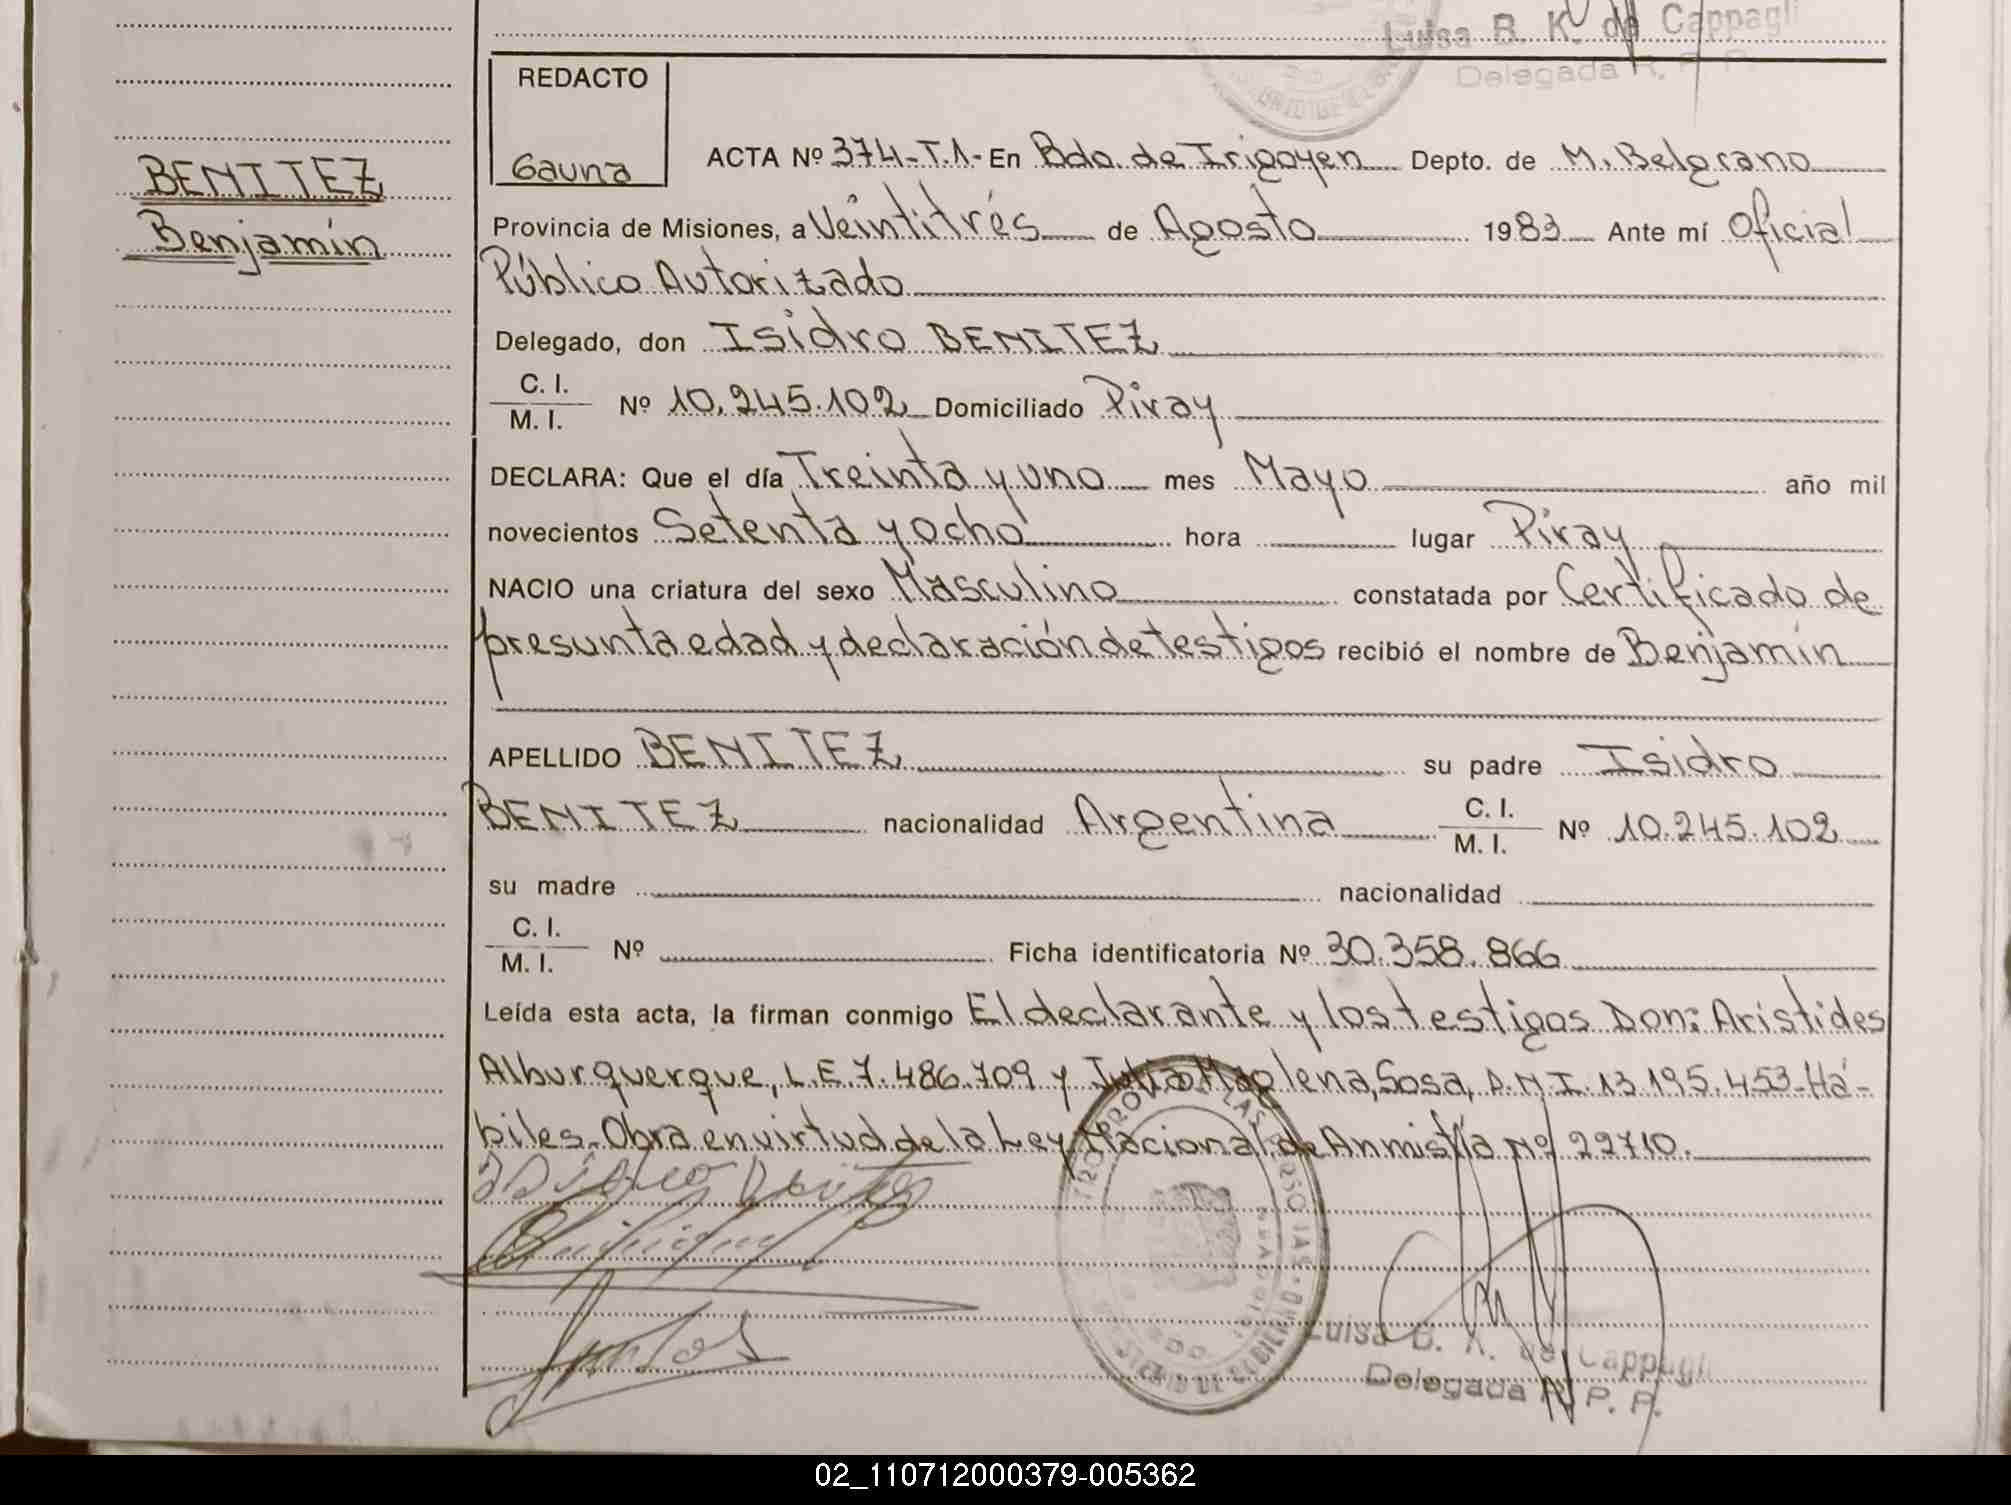 Luisa B. K. de Cappagli
Delegada R. P. P.
REDACTO
Gauna
BENITEZ
Benjamín
ACTA Nº 374-T.1- En Bdo. de Irigoyen Depto. de M. Belgrano
Provincia de Misiones, a Veintitrés de Agosto 1983 Ante mí Oficial
Público Autorizado
Delegado, don Isidro BENITEZ
C. I.
M. I. Nº 10.245.102 Domiciliado Piray
DECLARA: Que el día Treinta y uno mes Mayo año mil
novecientos Setenta y ocho hora lugar Piray
NACIO una criatura del sexo Masculino constatada por Certificado de
presunta edad y declaración de testigos recibió el nombre de Benjamín
APELLIDO BENITEZ su padre Isidro
BENITEZ nacionalidad Argentina C. I. M. I. Nº 10.245.102
su madre nacionalidad
C. I.
M. I. Nº Ficha identificatoria Nº 30.358.866
Leída esta acta, la firman conmigo El declarante y los testigos Don: Aristides
Alburquerque, L.E. 7.486.709 y Julia Maglena, Sosa, D.N.I. 13.195.453-Há-
biles. Obra en virtud de la Ley Nacional de Anmistía Nº 22710.
Luisa B. K. de Cappagli
Delegada R. P. P.
02_110712000379-005362